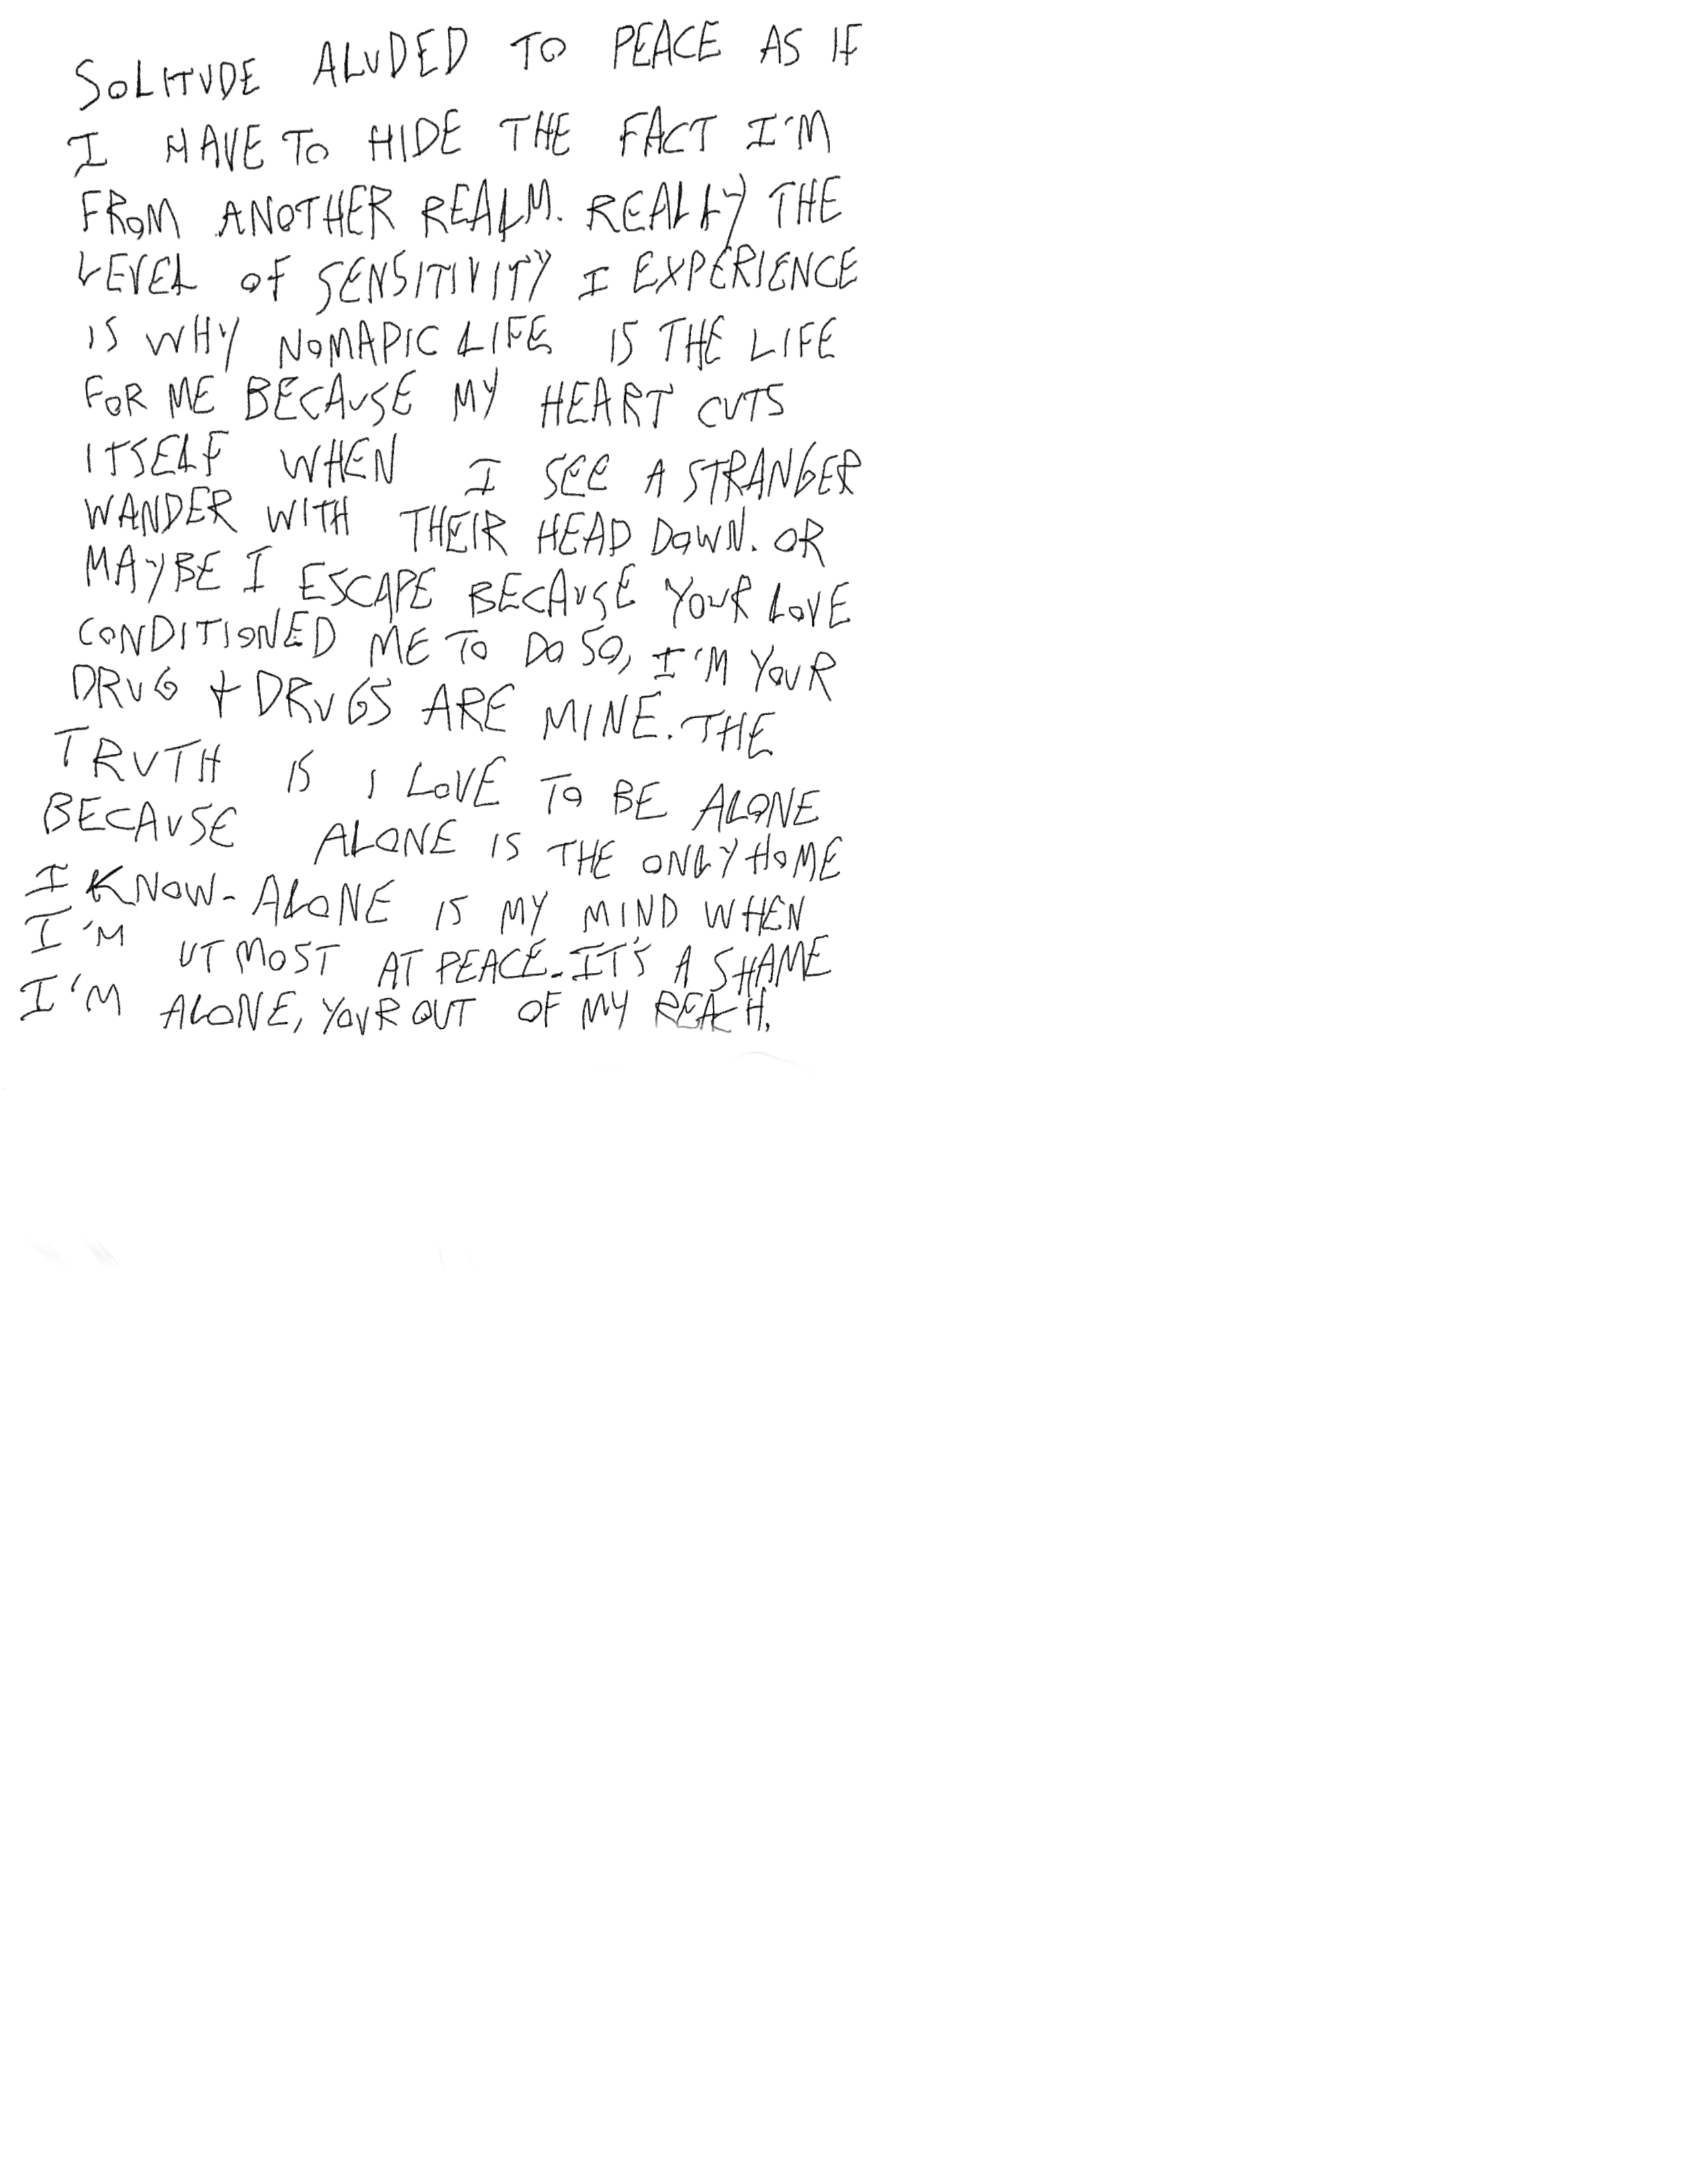 SOLITUDE ALUDED TO PEACE AS IF
I HAVE TO HIDE THE FACT I'M
FROM ANOTHER REALM. REALLY THE
LEVEL OF SENSITIVITY I EXPERIENCE
IS WHY NOMADIC LIFE IS THE LIFE
FOR ME BECAUSE MY HEART CUTS
ITSELF WHEN I SEE A STRANGER
WANDER WITH THEIR HEAD DOWN. OR
MAYBE I ESCAPE BECAUSE YOUR LOVE
CONDITIONED ME TO DO SO, I'M YOUR
DRUG + DRUGS ARE MINE. THE
TRUTH IS I LOVE TO BE ALONE
BECAUSE ALONE IS THE ONLY HOME
I KNOW. ALONE IS MY MIND WHEN
I'M UTMOST AT PEACE. IT'S A SHAME
I'M ALONE, YOUR OUT OF MY REACH.